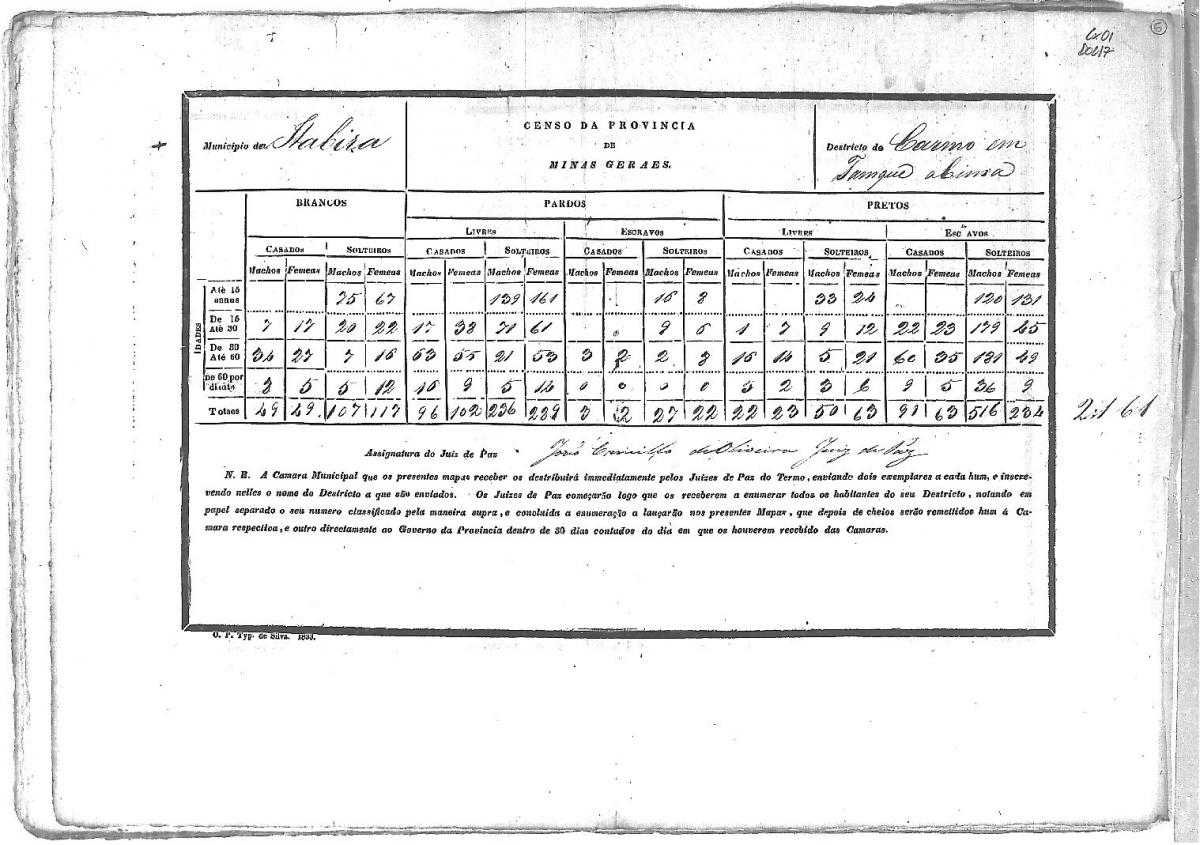 Cx 01
Doc 17
6
Municipio de Itabira
CENSO DA PROVINCIA
DE
MINAS GERAES.
Destricto do Carmo em
Tamque aLima
BRANCOS PARDOS PRETOS
LIVRES ESCRAVOS LIVRES ESCRAVOS
CASADOS SOLTEIROS CASADOS SOLTEIROS CASADOS SOLTEIROS CASADOS SOLTEIROS CASADOS SOLTEIROS
Machos Femeas Machos Femeas Machos Femeas Machos Femeas Machos Femeas Machos Femeas Machos Femeas Machos Femeas Machos Femeas Machos Femeas
IDADES
Até 15 annos 75 67 139 161 16 8 33 24 120 131
De 15 Até 30 7 17 20 22 17 38 71 61 9 6 1 7 9 12 22 23 179 45
De 30 Até 60 34 27 7 16 63 55 21 53 3 2 2 8 16 14 5 21 60 35 181 49
De 60 por diante 8 5 5 12 16 9 5 14 0 0 0 0 5 2 3 6 9 5 36 9
Totaes 49 49 107 117 96 102 236 289 3 2 27 22 22 23 50 63 91 63 516 234
2161
Assignatura do Juiz de Paz João Carvalho de Oliveira Juiz de Paz
N. B. A Camara Municipal que os presentes mapas receber os destribuirá immediatamente pelos Juizes de Paz do Termo, enviando dois exemplares a cada hum, e inscre-
vendo nelles o nome do Destricto a que são enviados. Os Juizes de Paz começarão logo que os receberem a enumerar todos os habitantes do seu Destricto, notando em
papel separado o seu numero classificado pela maneira supra, e concluida a enumeração a lançarão nos presentes Mapas, que depois de cheios serão remettidos hum á Ca-
mara respectiva, e outro directamente ao Governo da Provincia dentro de 30 dias contados do dia em que os houverem recebido das Camaras.
O. P. Typ. de Silva. 1833.